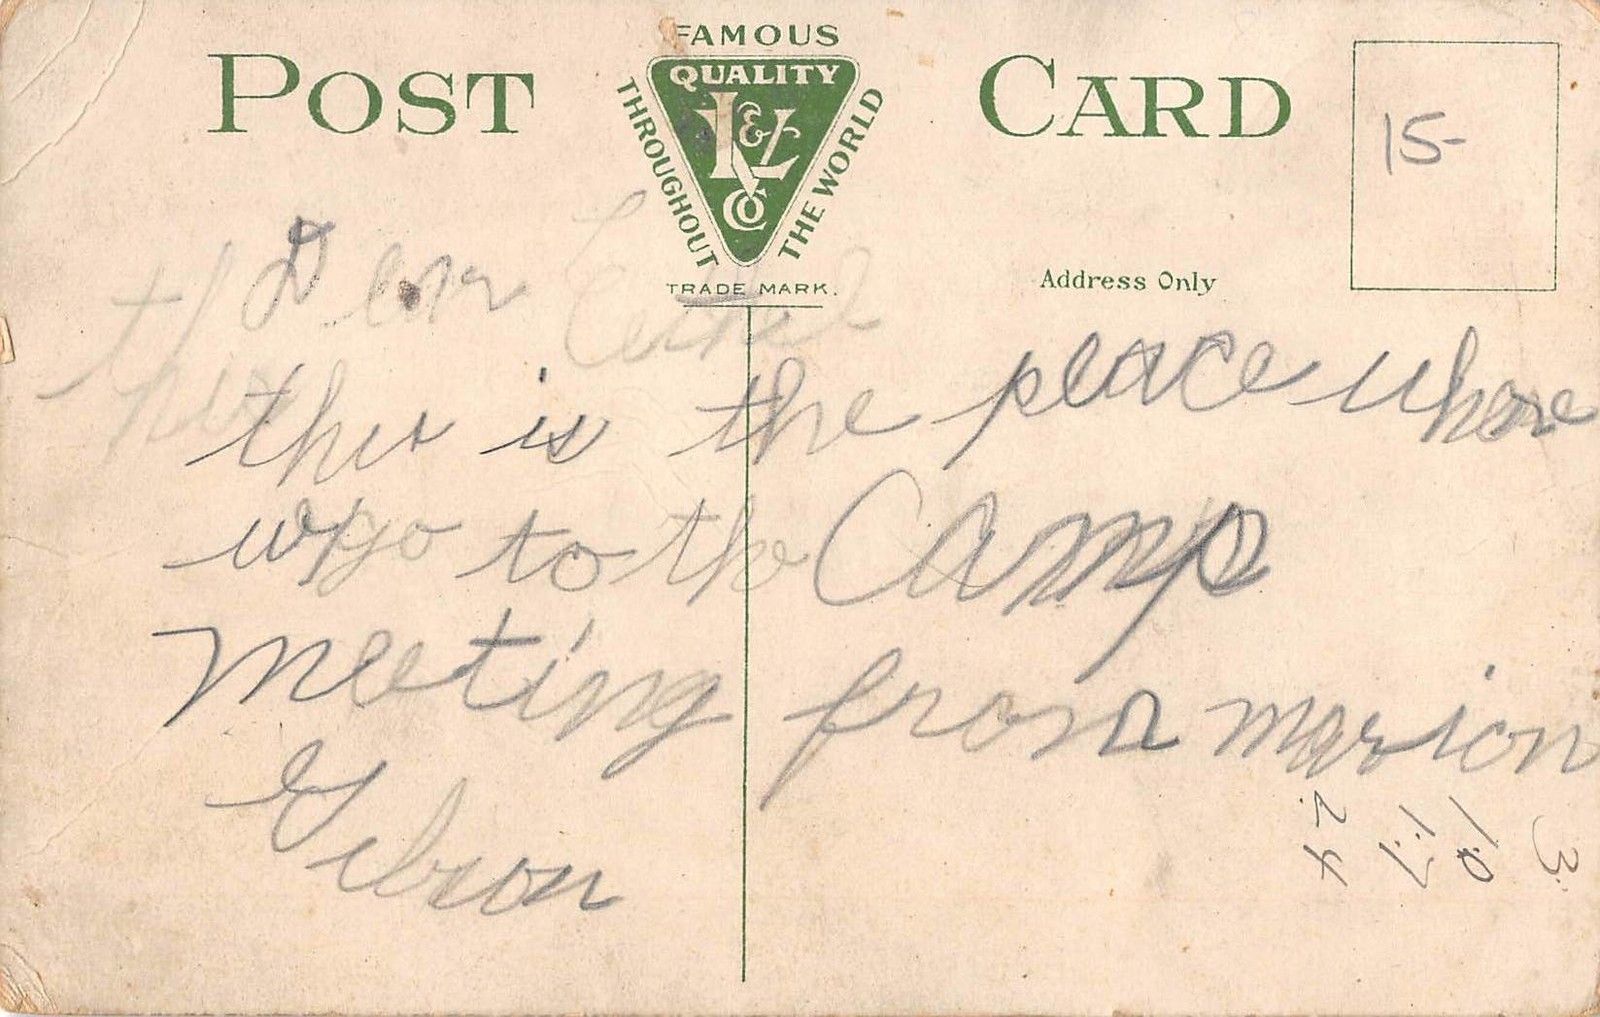 POST CARD
FAMOUS
QUALITY
THROUGHOUT
THE WORLD
K & L
Co
TRADE MARK.
Address Only
15-
Dear Ethel
this
this is the place whare
we go to the Camp
meeting from marion
Gibson
3
10
17
24